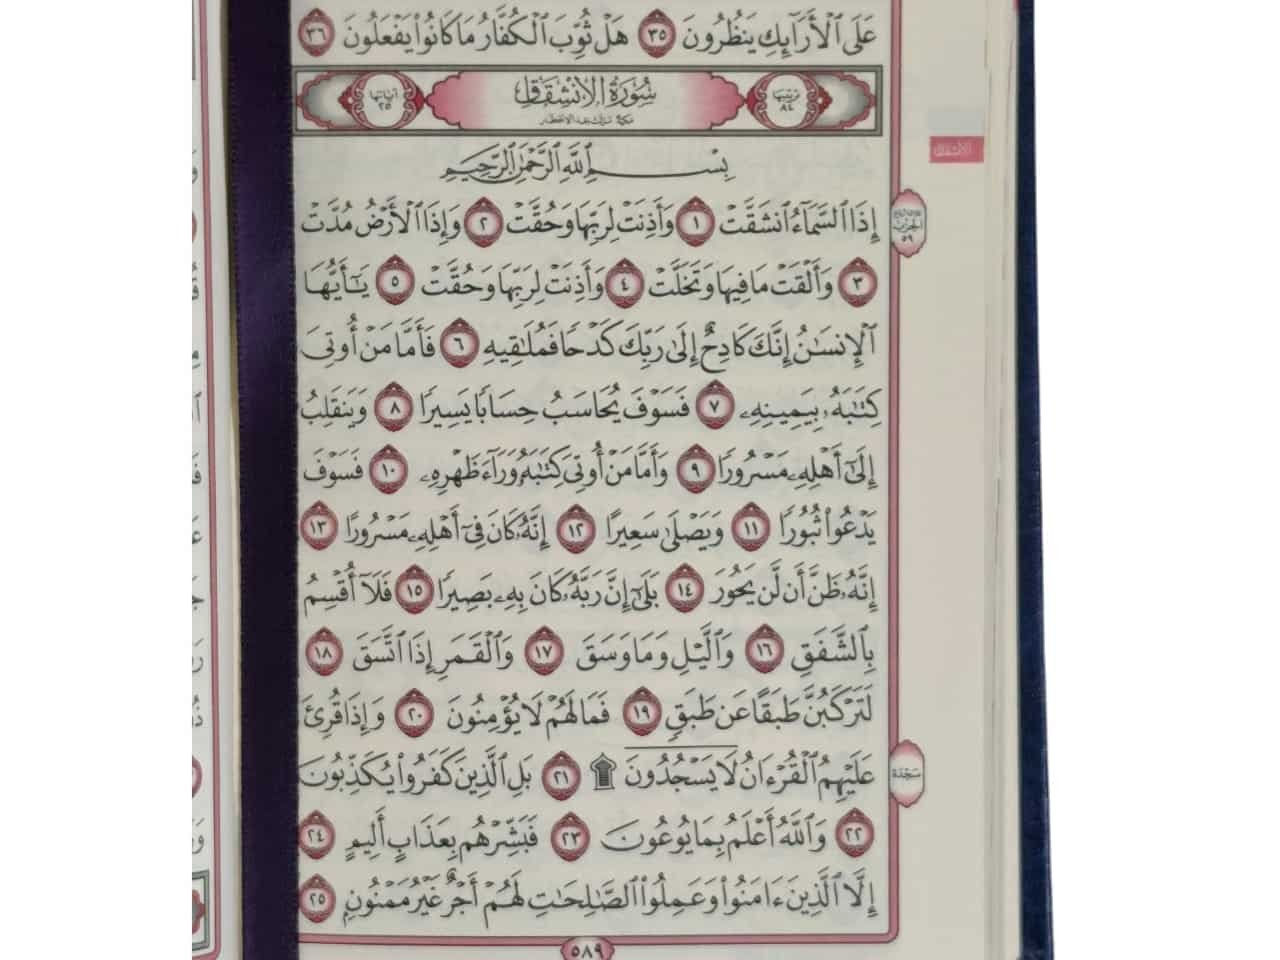 عَلَى ٱلْأَرَآئِكِ يَنظُرُونَ ٣٥ هَلْ ثُوِّبَ ٱلْكُفَّارُ مَا كَانُوا۟ يَفْعَلُونَ ٣٦
ترتيبها ٨٤ سُورَةُ الِانْشِقَاقِ آياتها ٢٥
بِسْمِ ٱللَّهِ ٱلرَّحْمَٰنِ ٱلرَّحِيمِ
إِذَا ٱلسَّمَآءُ ٱنشَقَّتْ ١ وَأَذِنَتْ لِرَبِّهَا وَحُقَّتْ ٢ وَإِذَا ٱلْأَرْضُ مُدَّتْ
٣ وَأَلْقَتْ مَا فِيهَا وَتَخَلَّتْ ٤ وَأَذِنَتْ لِرَبِّهَا وَحُقَّتْ ٥ يَٰٓأَيُّهَا
ٱلْإِنسَٰنُ إِنَّكَ كَادِحٌ إِلَىٰ رَبِّكَ كَدْحًا فَمُلَٰقِيهِ ٦ فَأَمَّا مَنْ أُوتِىَ
كِتَٰبَهُۥ بِيَمِينِهِۦ ٧ فَسَوْفَ يُحَاسَبُ حِسَابًا يَسِيرًا ٨ وَيَنقَلِبُ
إِلَىٰٓ أَهْلِهِۦ مَسْرُورًا ٩ وَأَمَّا مَنْ أُوتِىَ كِتَٰبَهُۥ وَرَآءَ ظَهْرِهِۦ ١٠ فَسَوْفَ
يَدْعُوا۟ ثُبُورًا ١١ وَيَصْلَىٰ سَعِيرًا ١٢ إِنَّهُۥ كَانَ فِىٓ أَهْلِهِۦ مَسْرُورًا ١٣
إِنَّهُۥ ظَنَّ أَن لَّن يَحُورَ ١٤ بَلَىٰٓ إِنَّ رَبَّهُۥ كَانَ بِهِۦ بَصِيرًا ١٥ فَلَآ أُقْسِمُ
بِٱلشَّفَقِ ١٦ وَٱلَّيْلِ وَمَا وَسَقَ ١٧ وَٱلْقَمَرِ إِذَا ٱتَّسَقَ ١٨
لَتَرْكَبُنَّ طَبَقًا عَن طَبَقٍ ١٩ فَمَا لَهُمْ لَا يُؤْمِنُونَ ٢٠ وَإِذَا قُرِئَ
عَلَيْهِمُ ٱلْقُرْءَانُ لَا يَسْجُدُونَ ۩ ٢١ بَلِ ٱلَّذِينَ كَفَرُوا۟ يُكَذِّبُونَ
٢٢ وَٱللَّهُ أَعْلَمُ بِمَا يُوعُونَ ٢٣ فَبَشِّرْهُم بِعَذَابٍ أَلِيمٍ ٢٤
إِلَّا ٱلَّذِينَ ءَامَنُوا۟ وَعَمِلُوا۟ ٱلصَّٰلِحَٰتِ لَهُمْ أَجْرٌ غَيْرُ مَمْنُونٍ ٢٥
٥٨٩
الحزب ٥٩
سَجْدَة